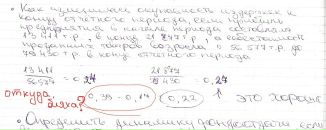 • Как изменилась окупаемость издержек к
концу отчетного периода, если прибыль
предприятия в начале периода составляла
13 411 т.р., в конец 21 547 т.р., а себестоимость
проданных товаров возросла с 56 577 т.р. до
79 430 т.р. в конце отчетного периода
13 411 / 56 577 = 0,24
/ 79 430 = 0,27
откуда
взяла?
0,39 - 0,17 = 0,22
↑ это хорошо
• Определить динамику